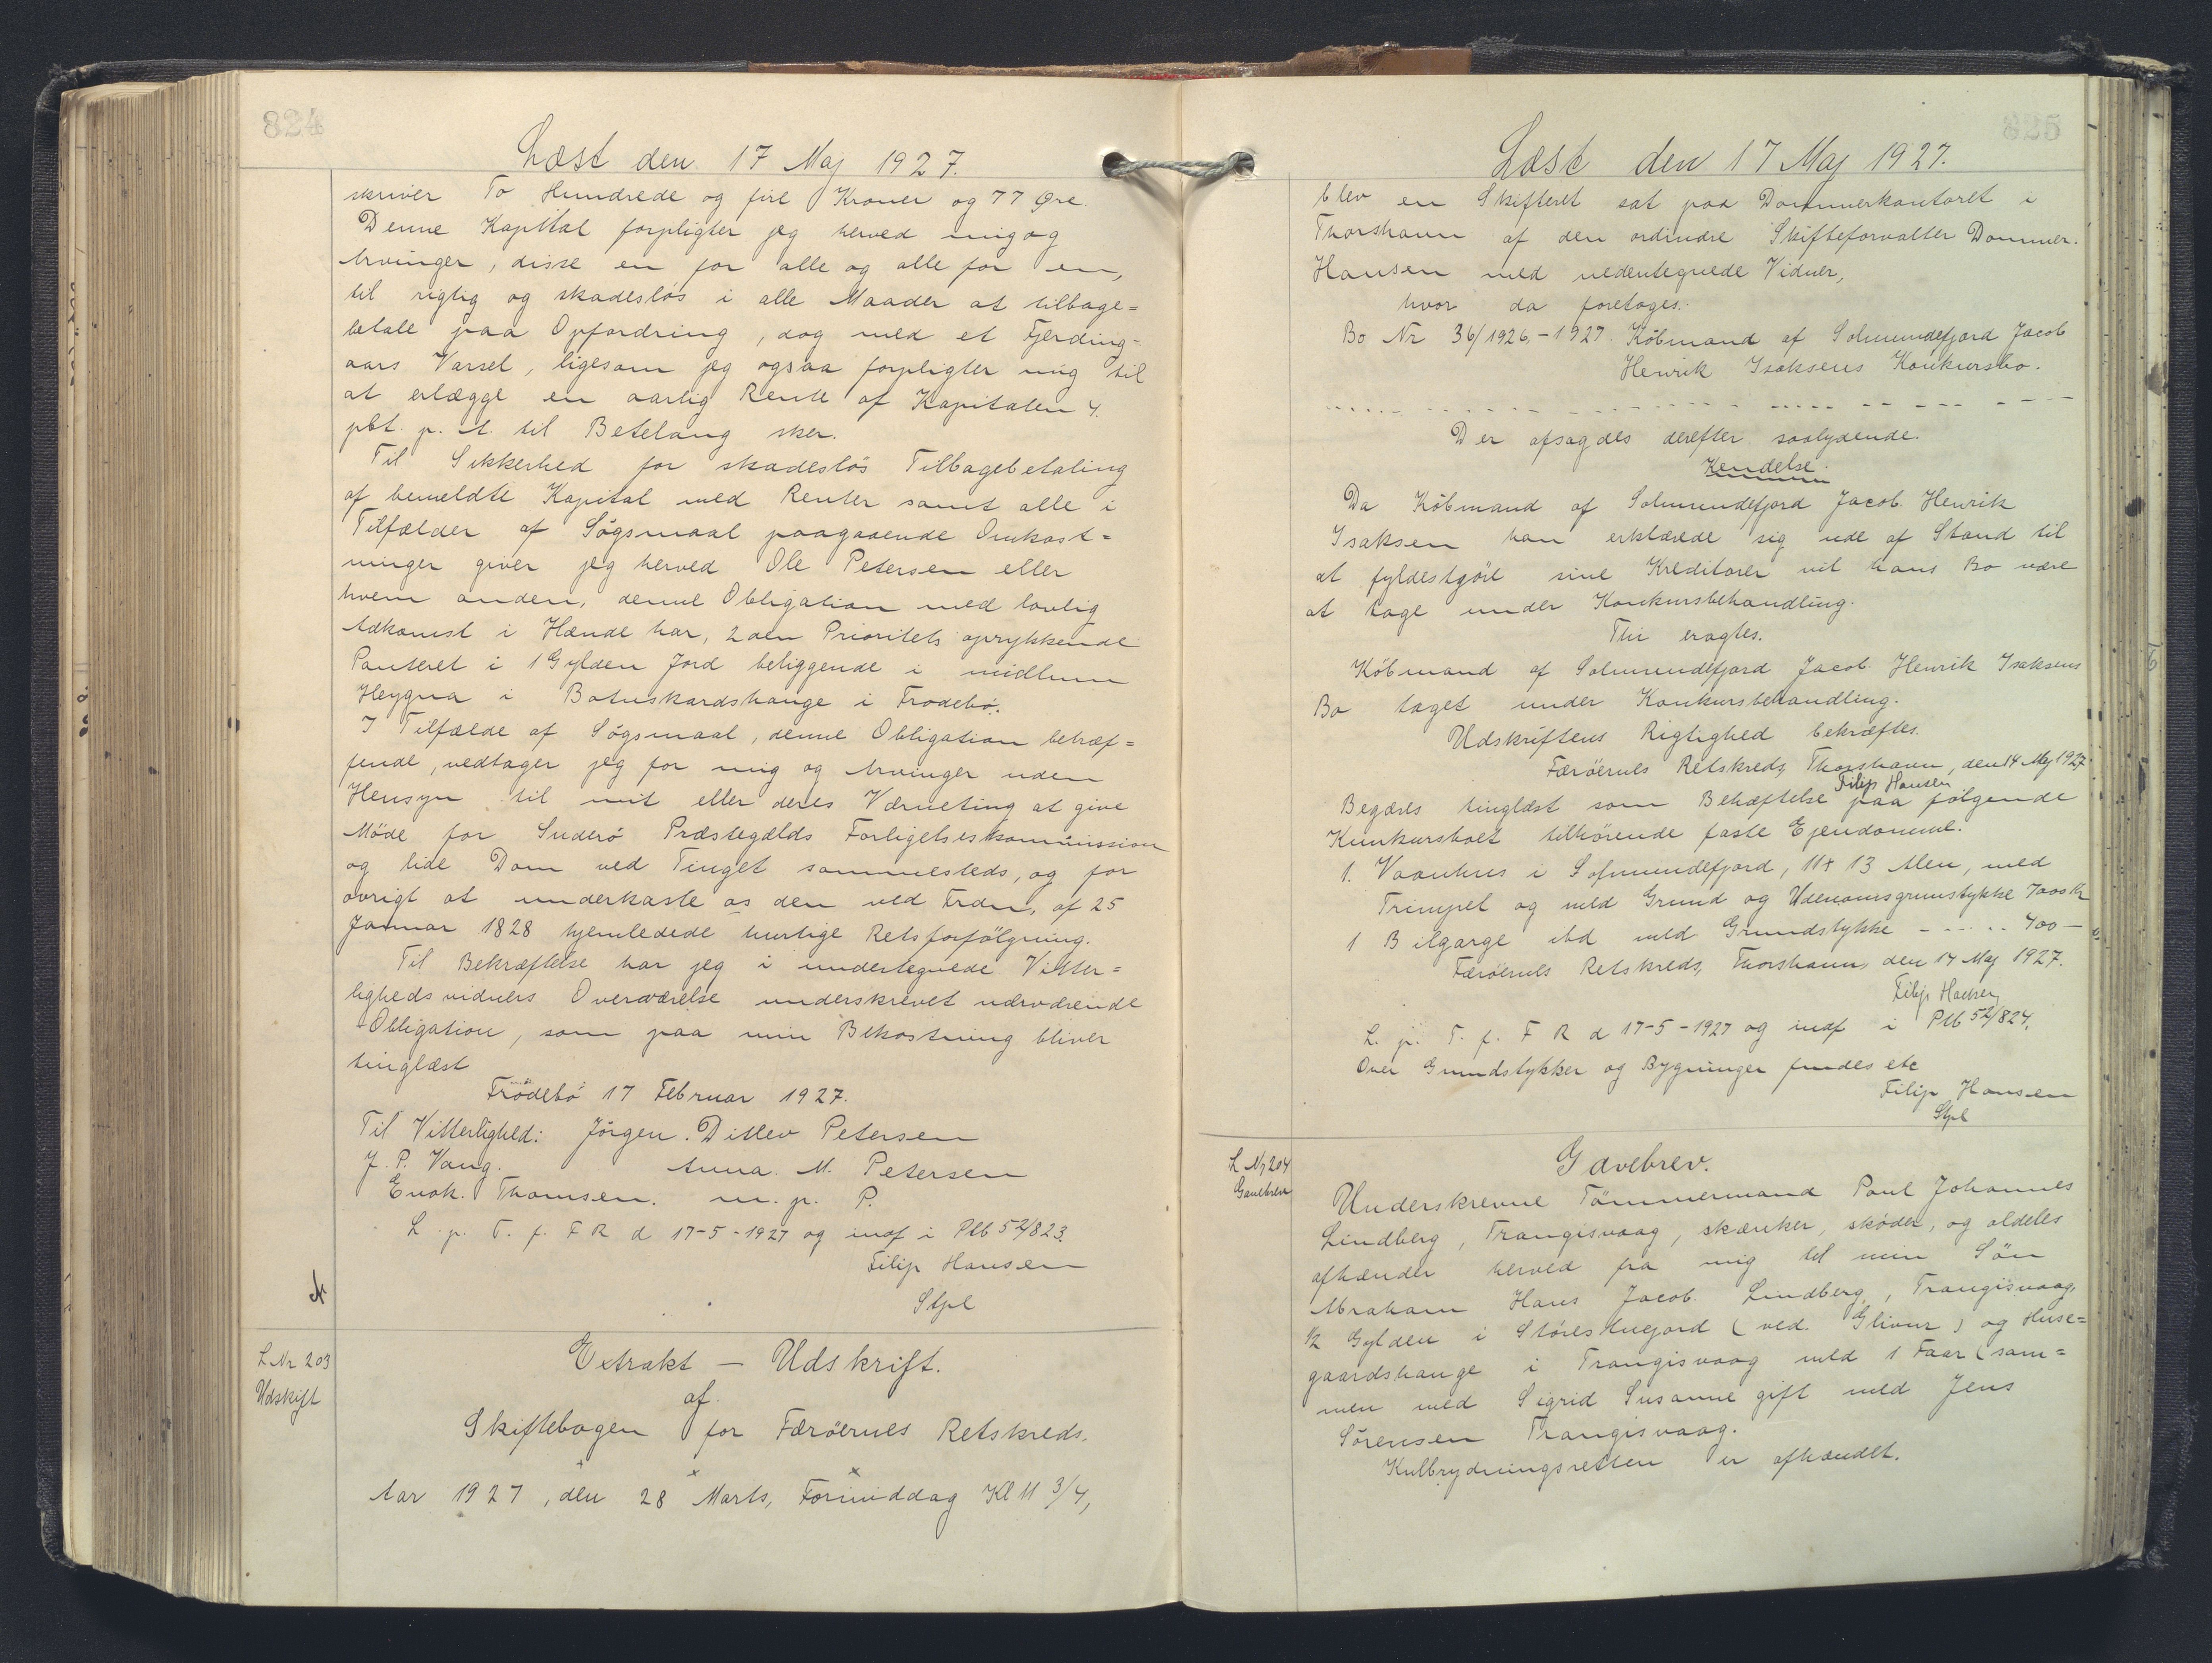 824
Læst den 17 Maj 1927.
skriver To Hundrede og fire Kroner og 77 Øre.
Denne Kapital forpligter jeg herved mig og
Arvinger, disse en for alle og alle for en,
til rigtig og skadesløs i alle Maader at tilbage=
betale paa Opfordring, dog med et Fjerding-
aars Varsel, ligesom jeg ogsaa forpligter mig til
at erlægge en aarlig Rente af Kapitalen 4
pct. p. A. til Betelang sker.
Til Sikkerhed for skadesløs Tilbagebetaling
af bemeldte Kapital med Renter samt alle i
Tilfælder af Søgsmaal paagaaende Omkost=
ninger giver jeg herved Ole Petersen eller
hvem anden, denne Obligation med lovlig
Adkomst i Hænde har, 2den Prioritets oprykkende
Panteret i 1 Gylden Jord beliggende i midlum
Heygna i Botnskardshauge i Frodebø.
I Tilfælde af Søgsmaal, denne Obligation betræf=
fende, vedtager jeg for mig og Arvinger uden
Hensyn til mit eller deres Værneting at give
Møde for Suderø Præstegælds Forligelseskommission
og lide Dom ved Tinget sammesteds, og for
øvrigt at underkaste os den ved Frdn. af 25
Januar 1828 hjemledede hurtige Retsforfølgning.
Til Bekræftelse har jeg i undertegnede Vitter=
lighedsvidners Overværelse underskrevet nærværende
Obligation, som paa min Bekostning bliver
tinglæst
Frödebø 17 Februar 1927.
Til Vitterlighed: Jørgen Ditlev Petersen
J. P. Vang. Anna M. Petersen
Enok. Thomsen. m. p. P.
L. p. T. f. F R d 17-5-1927 og indf i Ptb 52/823.
Filip Hansen
Stpl
L Nr 203
Udskift
Extrakt - Udskrift.
af.
Skiftebogen for Færøernes Retskreds.
Aar 1927, den 28 Marts, Formiddag Kl 11 3/4,
825
Læst den 17 Maj 1927.
blev en Skifteret sat paa Dommerkontoret i
Thorshavn af den ordinære Skifteforvalter Dommer.
Hansen med nedentegnede Vidner,
hvor da foretoges.
Bo Nr 36/1926-1927. Købmand af Solmundefjord Jacob
Henrik Isaksens Konkursbo.
Der afsagdes derefter saalydende.
Kendelse.
Da Købmand af Solmundefjord Jacob Henrik
Isaksen han erklærede sig ude af Stand til
at fyldestgøre sine Kreditorer vil hans Bo være
at tage under Konkursbehandling.
Thi eragtes.
Købmand af Solmundefjord Jacob Henrik Isaksens
Bo taget under Konkursbehandling.
Udskriftens Rigtighed bekræftes.
Færøernes Retskreds, Thorshavn, den 14 Maj 1927.
Filip Hansen
Begæres tinglæst som Behæftelse paa følgende
Kunkursboet tilhørende faste Ejendomme.
1. Vaanhus i Solmundefjord, 11 x 13 Alen, med
Trempel og med Grund og Udenomsgrunstykke 7000 Kr
1 Bilgarge ibd med Grundstykke - - - - - 400 -
Færøernes Retskreds, Thorshavn, den 17 Maj 1927.
Filip Hansen
L. p. T. f. F R d 17-5-1927 og indf i Ptb 52/824.
Over Grundstykker og Bygninger findes etc
Filip Hansen
Stpl
L Nr 204
Gavebrev
Gavebrev.
Underskrevne Tømmermand Poul Johannes
Lindberg, Trangisvaag, skænker, skøder, og aldeles
afhænder herved fra mig til min Søn
Abraham Hans Jacob Lindberg, Trangisvaag,
1/2 Gylden i Størestuejord (ved. Glivur) og Huse=
gaardshauge i Trangisvaag med 1 Faar (sam=
men med Sigrid Susanne gift med Jens
Sørensen Trangisvaag.
Kulbrydningsretten er afhændet.